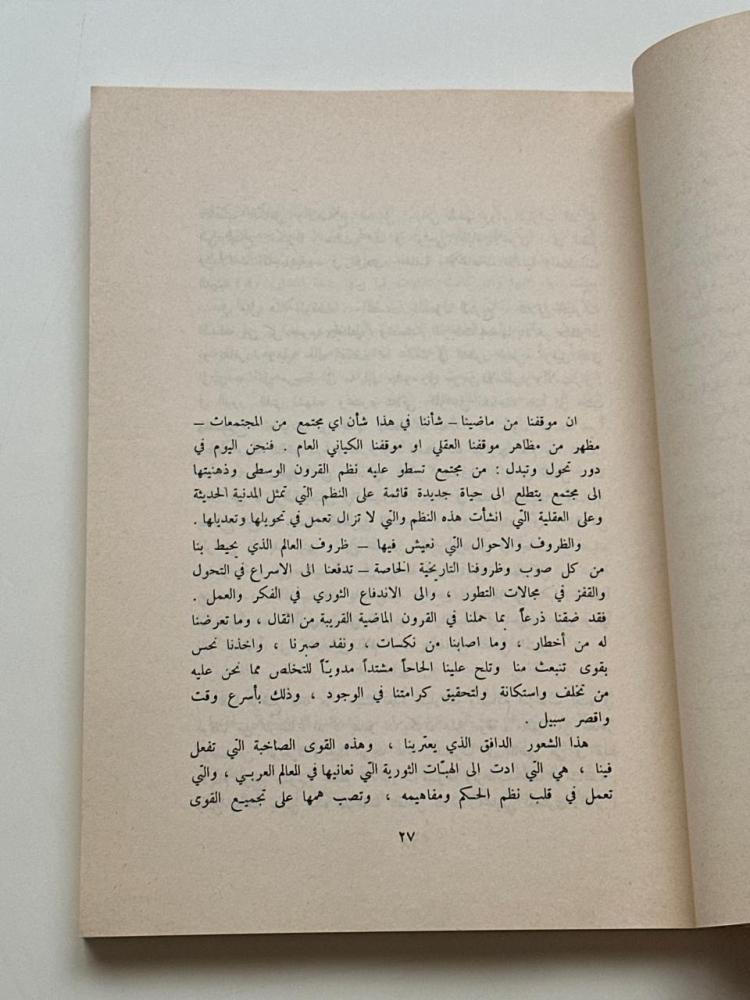 ان موقفنا من ماضينا – شأننا في هذا شأن اي مجتمع من المجتمعات –
مظهر من مظاهر موقفنا العقلي او موقفنا الكياني العام . فنحن اليوم في
دور تحول وتبدل : من مجتمع تسطو عليه نظم القرون الوسطى وذهنيتها
الى مجتمع يتطلع الى حياة جديدة قائمة على النظم التي تمثل المدنية الحديثة
وعلى العقلية التي انشأت هذه النظم والتي لا تزال تعمل في تحويلها وتعديلها .
والظروف والاحوال التي نعيش فيها – ظروف العالم الذي يحيط بنا
من كل صوب وظروفنا التاريخية الخاصة – تدفعنا الى الاسراع في التحول
والقفز في مجالات التطور ، والى الاندفاع الثوري في الفكر والعمل .
فقد ضقنا ذرعاً بما حملنا في القرون الماضية القريبة من اثقال ، وما تعرضنا
له من أخطار ، وما اصابنا من نكسات ، ونفد صبرنا ، واخذنا نحس
بقوى تنبعث منا وتلح علينا الحاحاً مشتداً مدويـّاً للتخلص مما نحن عليه
من تخلف واستكانة ولتحقيق كرامتنا في الوجود ، وذلك بأسرع وقت
واقصر سبيل .
هذا الشعور الدافق الذي يعترينا ، وهذه القوى الصاخبة التي تفعل
فينا ، هي التي ادت الى الهبّات الثورية التي نعانيها في العالم العربي ، والتي
تعمل في قلب نظم الحكم ومفاهيمه ، وتصب همها على تجميع القوى
٢٧